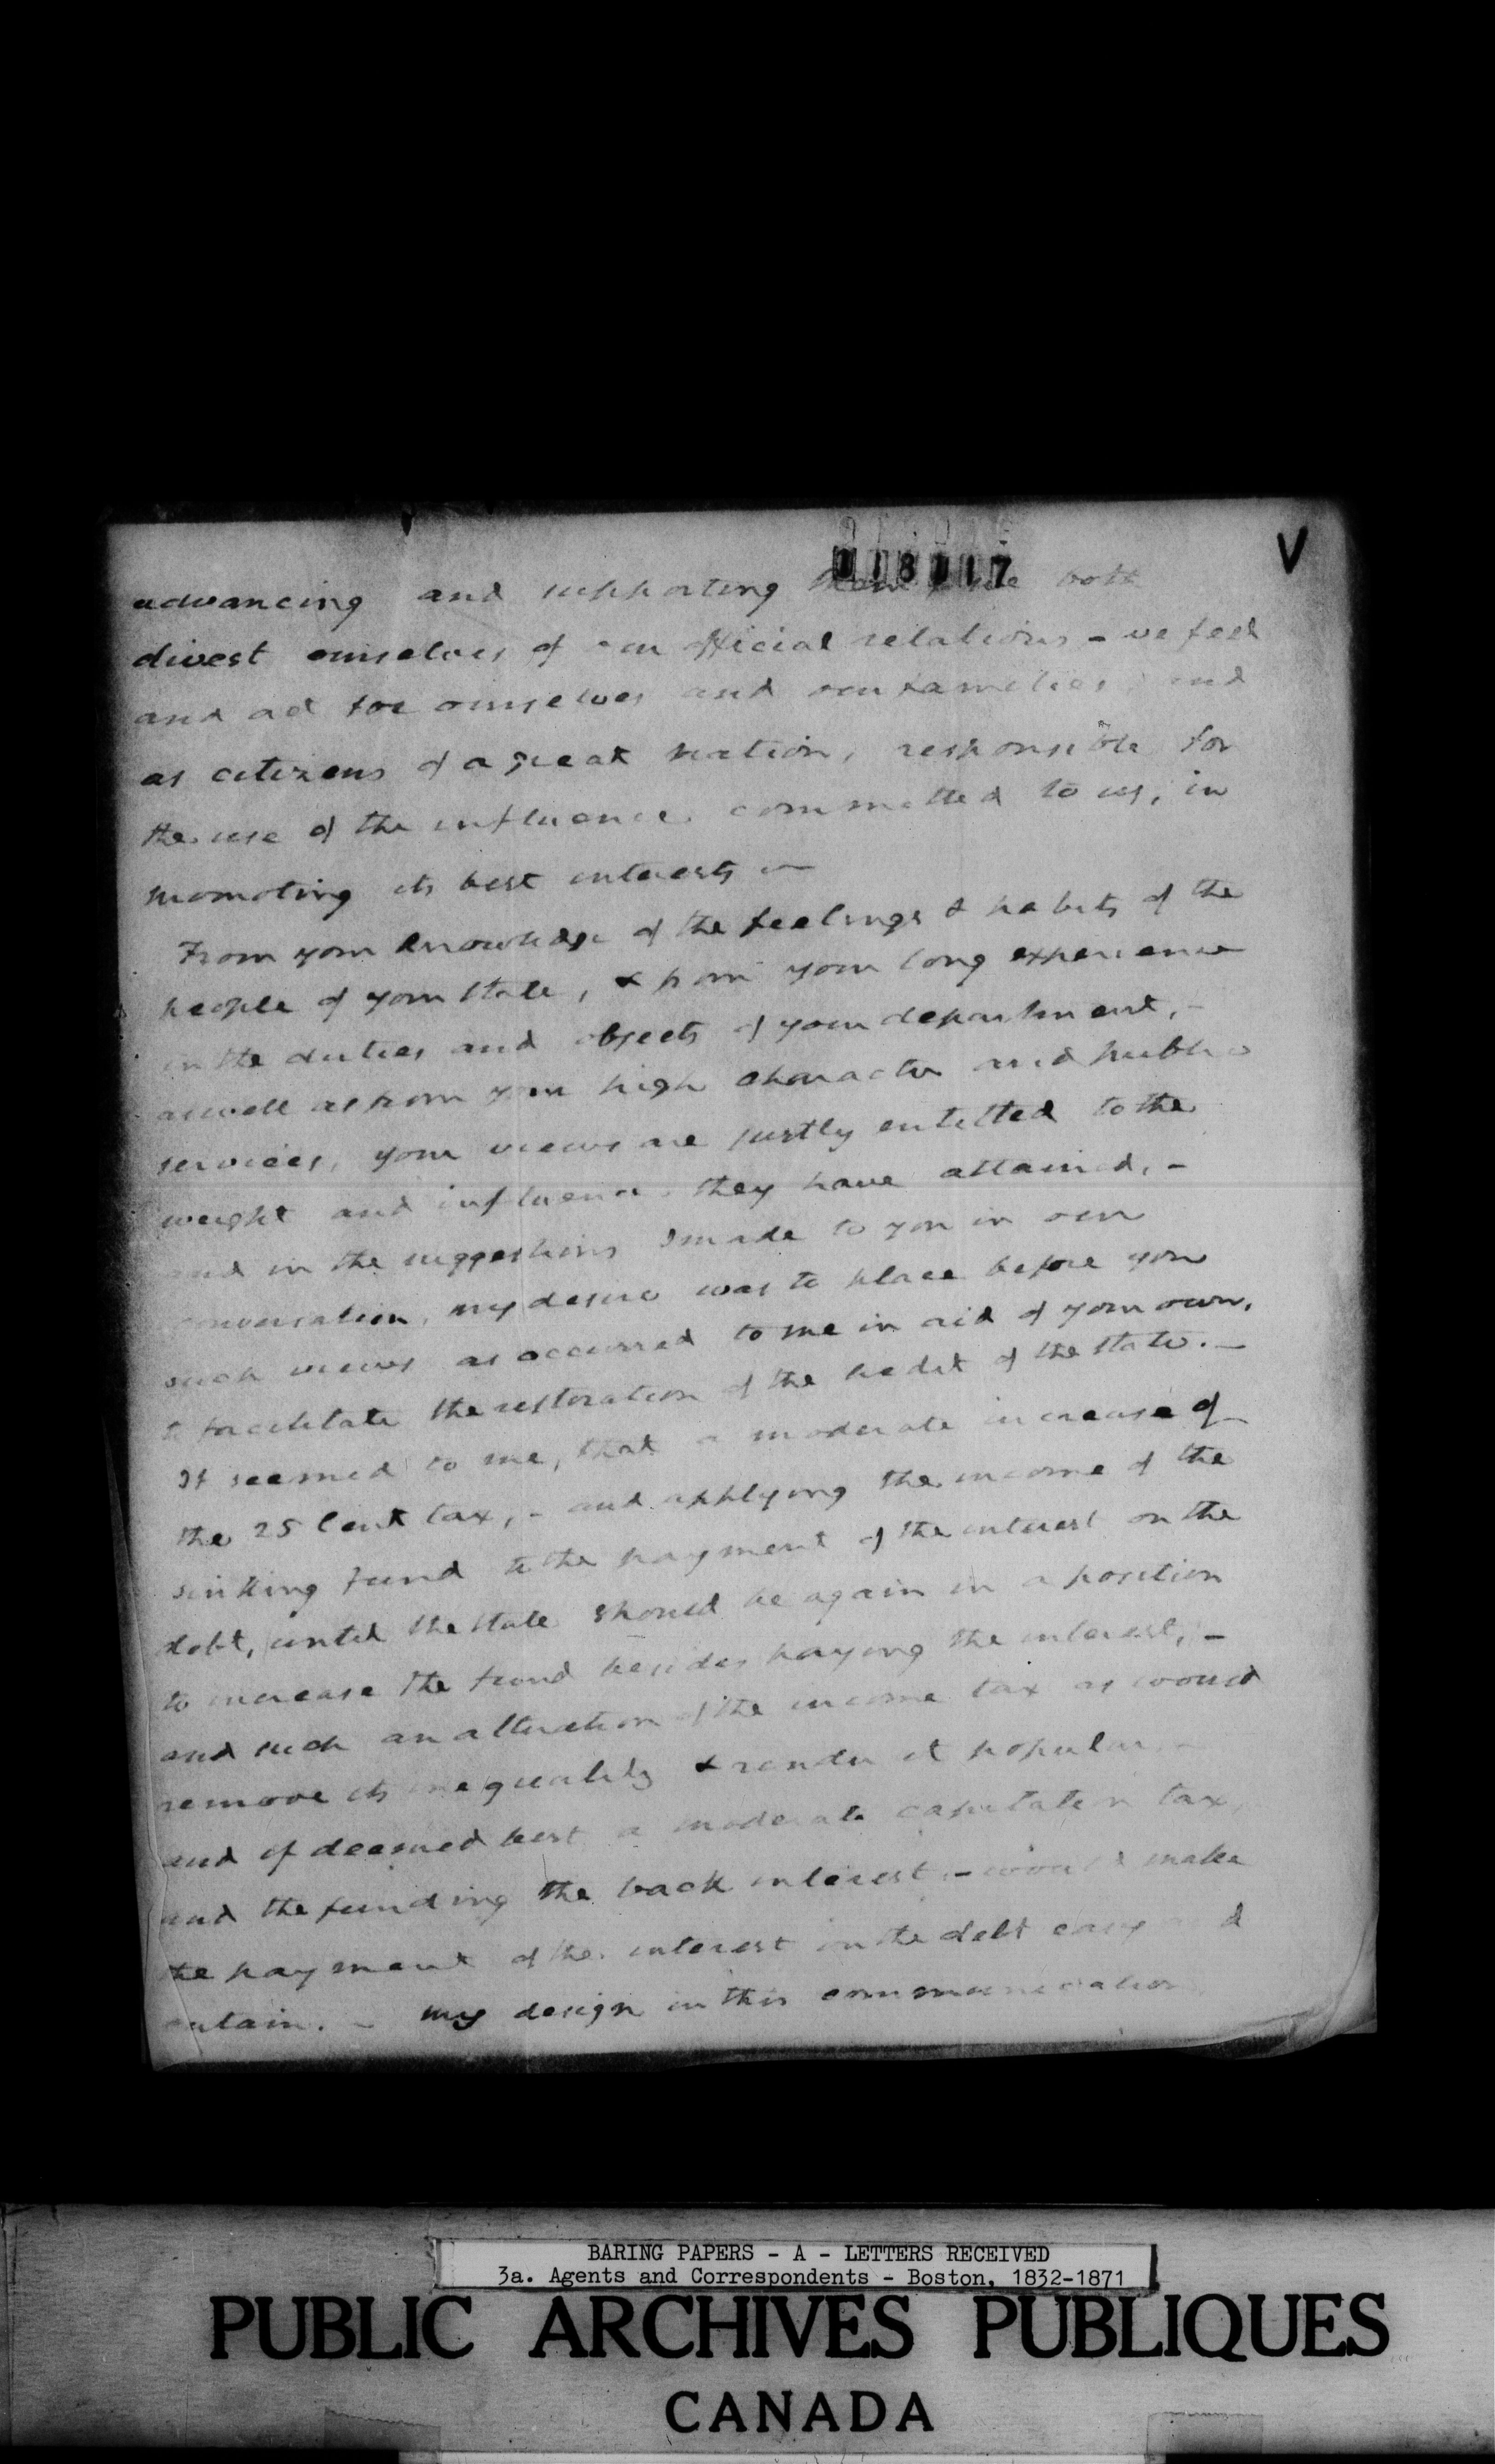 018117
V
advancing and supporting them we both
divest ourselves of our official relations - we feel
and act for ourselves and our families, and
as citizens of a great nation, responsible for
the use of the influence committed to us, in
promoting its best interests
From your knowledge of the feelings & habits of the
people of your State, & from your long experience
in the duties and objects of your department, -
as well as from your high character and public
services, your views are justly entitled to the
weight and influence they have attained, -
and in the suggestions I made to you in our
conversation, my desire was to place before you
such views as occurred to me in aid of your own,
to facilitate the restoration of the credit of the State. -
It seemed to me, that a moderate increase of
the 25 Cent tax, - and applying the income of the
sinking fund to the payment of the interest on the
debt, until the State should be again in a position
to increase the fund besides paying the interest, -
and such an alteration of the income tax as would
remove its inequality & render it popular -
and if deemed best a moderate capitation tax,
and the funding the back interest, - would make
the payment of the interest on the debt easy and
certain. - My design in this communication
BARING PAPERS - A - LETTERS RECEIVED
3a. Agents and Correspondents - Boston, 1832-1871
PUBLIC ARCHIVES PUBLIQUES
CANADA